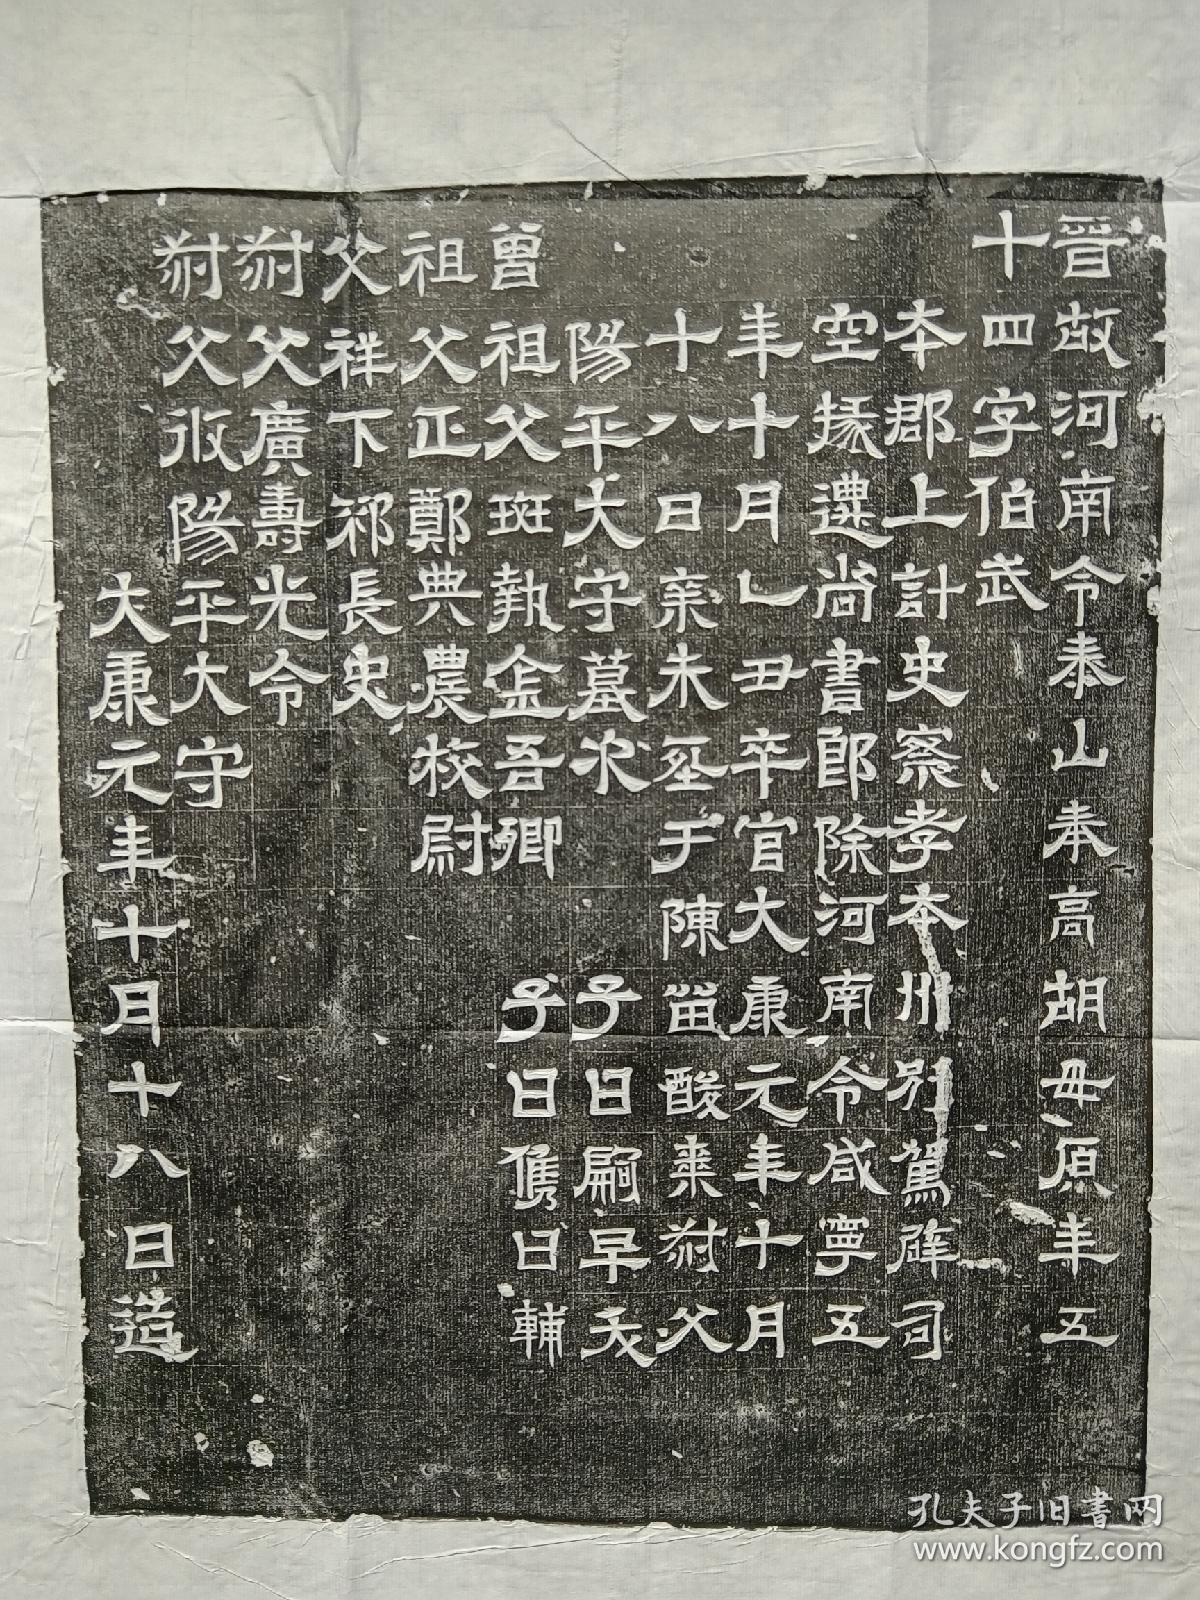 晉故河南令泰山奉高胡毋原年五
十四字伯武
本郡上計史察孝本州別駕辟司
空掾遷尚書郎除河南令咸寧五
年十月乙丑卒官大康元年十月
十八日亲未丕于陳留酸棗祔父
陽平大守墓次 子曰嗣早夭
曾祖父班執金吾卿 子曰儁曰輔
祖父正鄭典農校尉
父祥下邳長史
祔父廣壽光令
祔父陽平大守
大康元年十月十八日造
孔夫子旧書网
www.kongfz.com